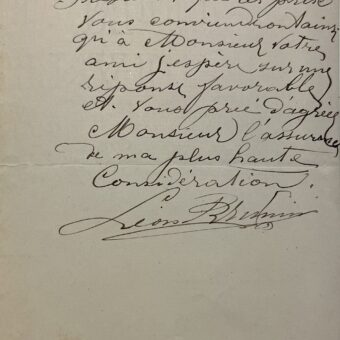 que les prix
vous conviendront ainsi
qu'à Monsieur votre
ami j'espère sur une
réponse favorable
et vous prie d'agréer
Monsieur l'assurance
de ma plus haute
Considération.
Léon